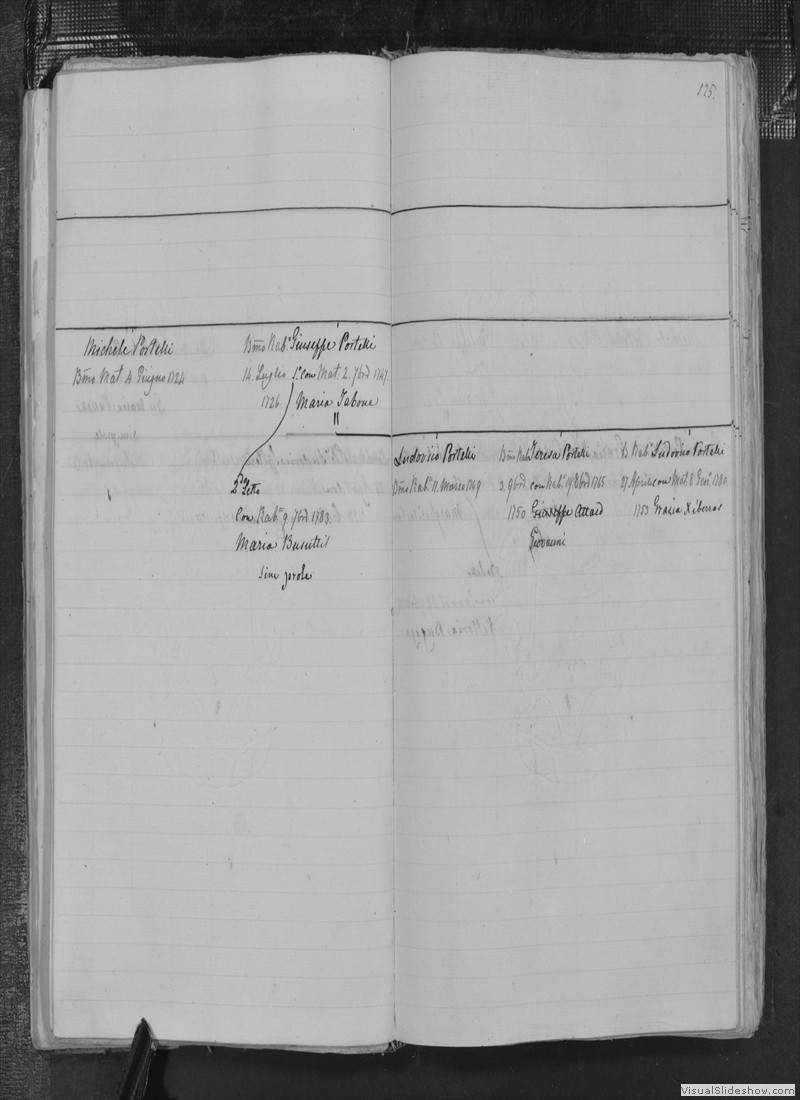 125.
Michele Portelli
Bmo Mat. 4. Giugno 1724
Bmo Rab.o Giuseppe Portelli
14. Luglio 1.o Con Mat. 2. 7bre 1747.
1726. Maria Tabone
2.o Letto
Con Rab.o 9 7bre 1783.
Maria Busuttil
sine prole
Ludovico Portelli
Bmo Rab.o 11. Marzo 1749
Bmo Rab. Teresa Portelli
2. 9bre con Rab.o 19 Xbre 1765
1750 Giuseppe Attard
Giovanni
Rab.o Ludovico Portelli
27 Aprile con Mat. 8 Gen.o 1780.
1753 Grazia Xiberras
VisualSlideshow.com